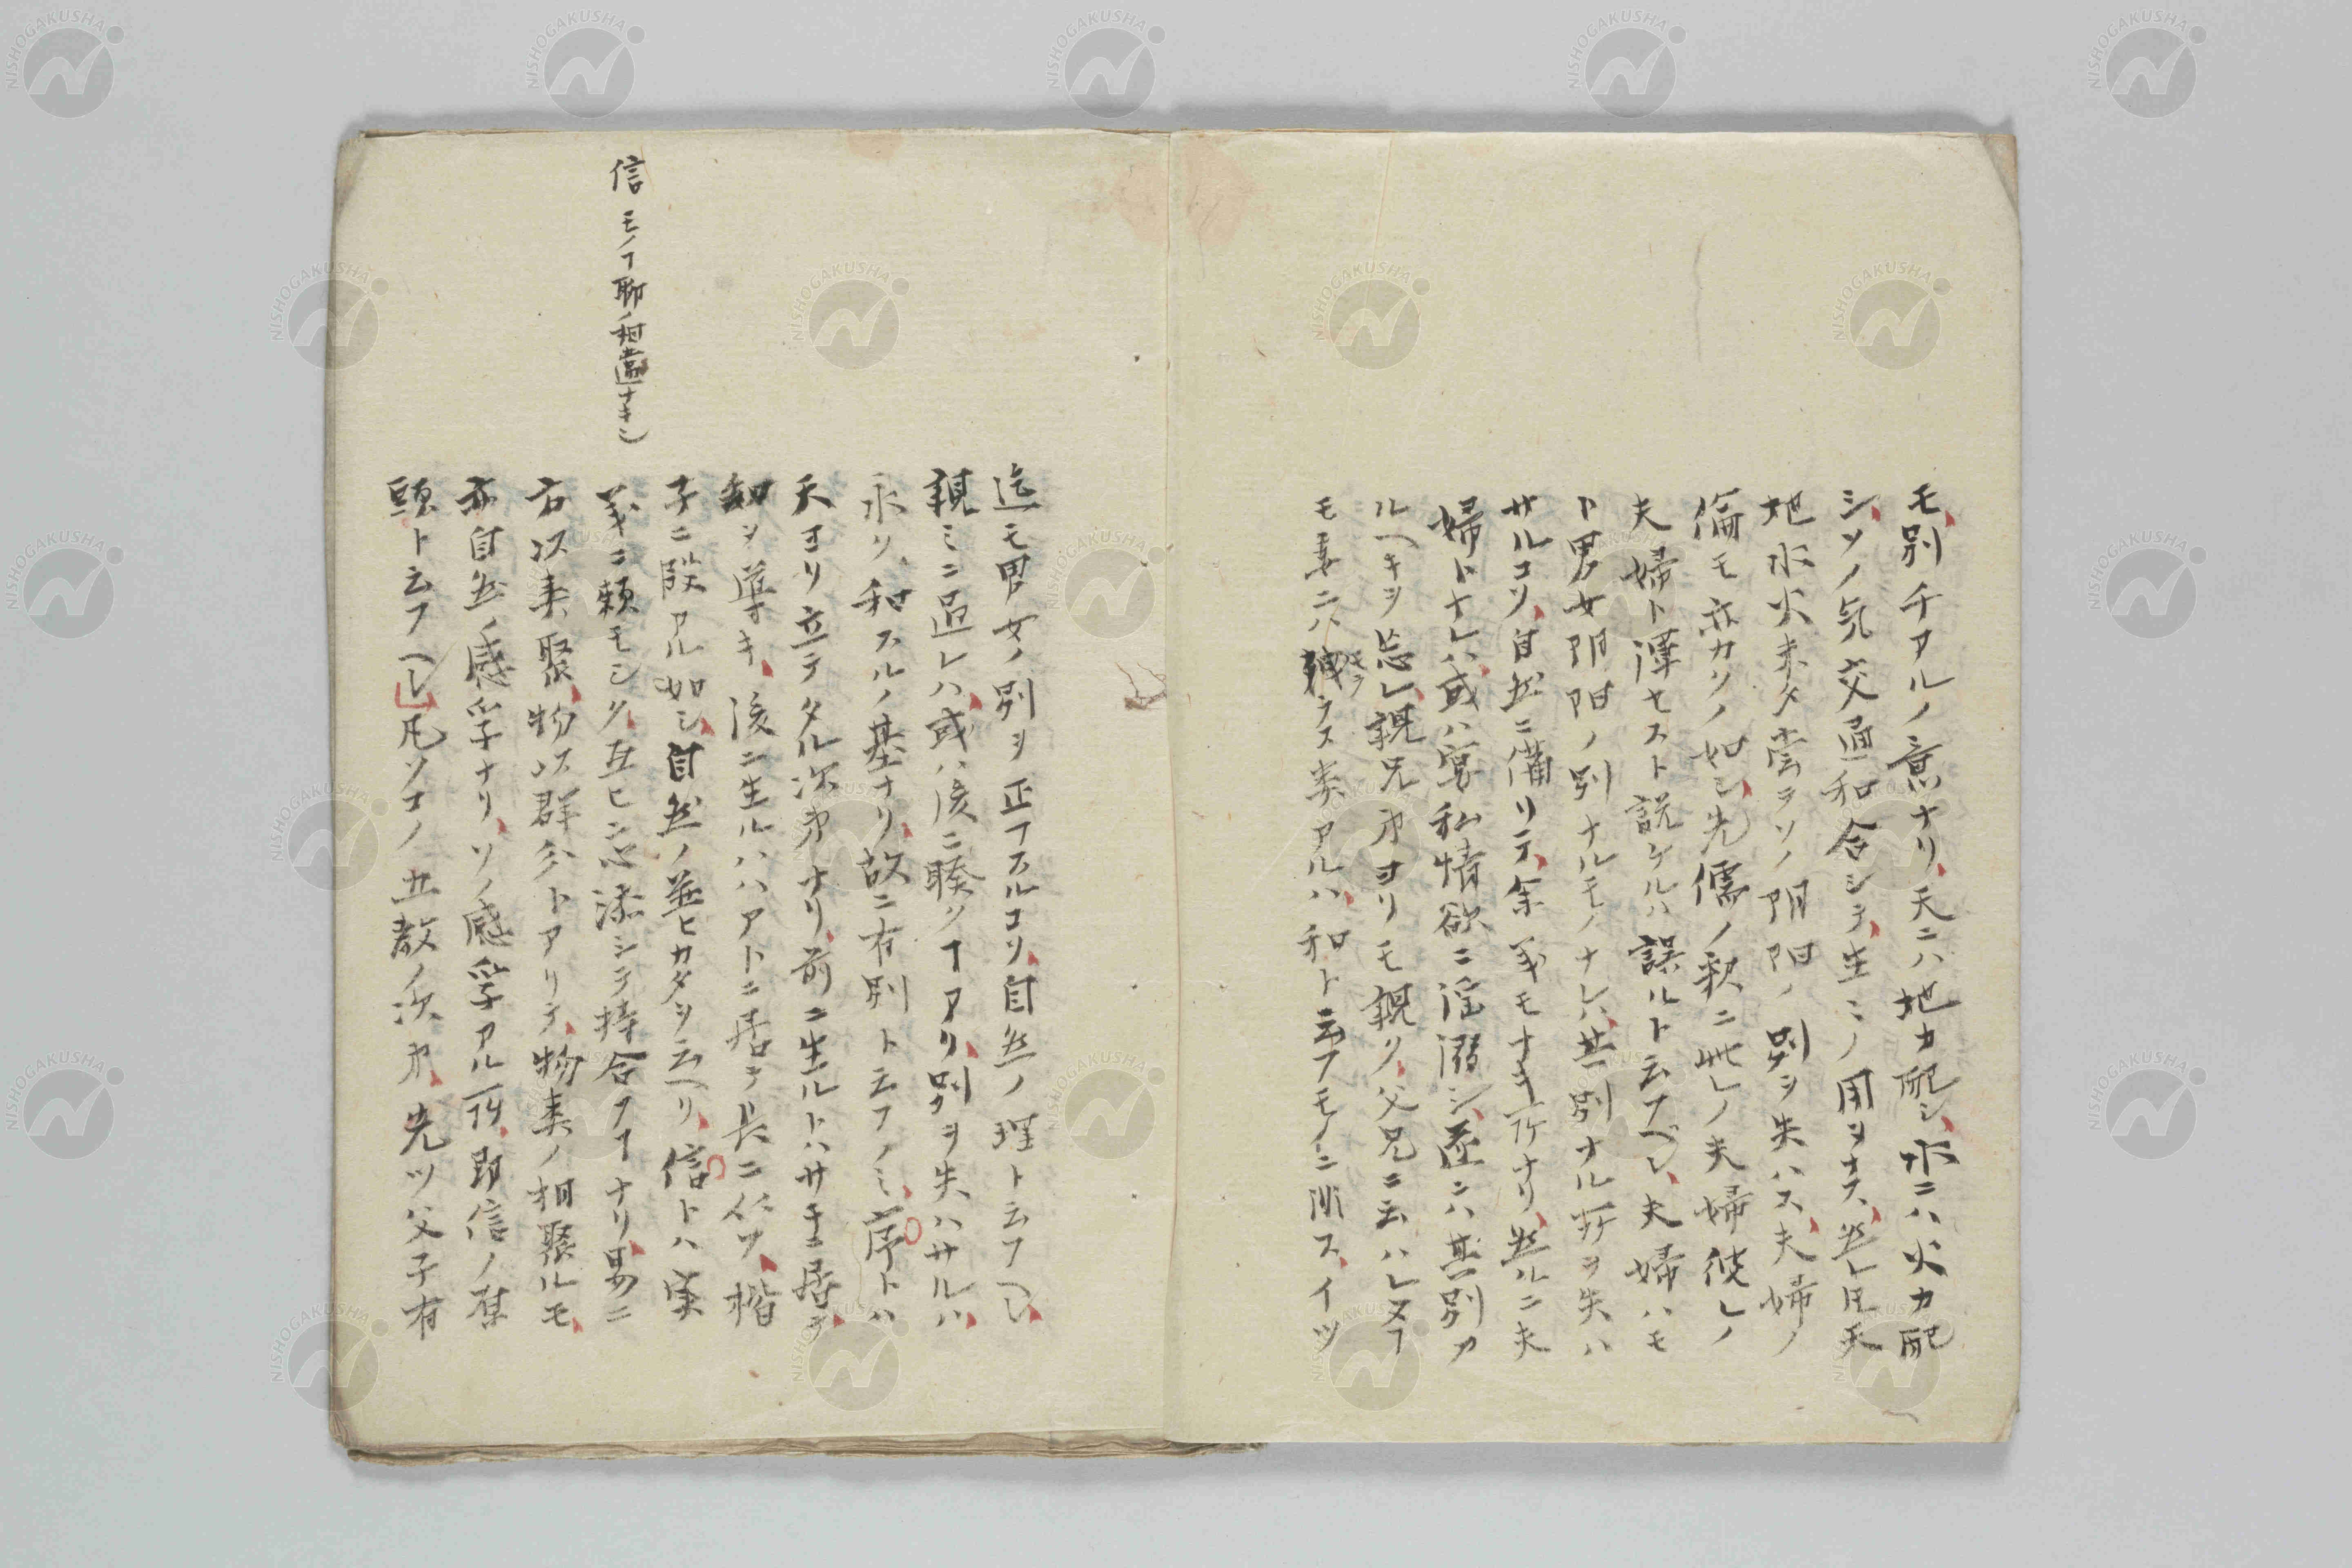 モ、別チアルノ意ナリ、天ニハ地カ配シ、水ニハ火カ配
シ、ソノ気交通和合シテ、生々ノ用ヲナス、然レ𪜈天
地水火未タ嘗テソノ阴阳ノ別ヲ失ハス、夫婦ノ
倫モ亦カクノ如シ、先儒ノ釈ニ此レノ夫婦彼レノ
夫婦ト渾セスト説ケルハ誤ルト云フベシ、夫婦ハモ
ト男女阴阳ノ別ナルモノナレハ、其別ナル所ヲ失ハ
サルコソ、自然ニ備リテ、余義モナキ所ナリ、然ルニ夫
婦トナレハ、或ハ宴私情欲ニ淫溺シ、遂ニハ其別カ
ルヘキヲ忘レ、親兄弟ヨリモ親ク、父兄ニ云ハレヌヿ
モ妻ニハ
ラス類アルハ、和ト云フモノニ非ス、イツ
迄モ男女ノ別ヲ正フスルコソ、自然ノ理ト云フヘシ、
親ミニ過レハ、或ハ後ニ睽クヿアリ、別ヲ失ハサルハ、
永ク和スルノ基ナリ、故ニ有別ト云フノミ、序トハ
天ヨリ立テタル次第ナリ、前ニ生ルトハサキニ居テ、
知ヲ導キ、後ニ生ルハハアトニ居テ長ニ従フ、楷
子ニ段アル如シ、自然ノ並ヒカタヲ云ヘリ、信トハ実
義ニ頼モシク、互ヒニ志添シテ持合フヿナリ、易ニ
方以類聚、物以群分トアリテ、物類ノ相聚ルモ、
亦自然ノ感孚ナリ、ソノ感孚アル所、即信ノ存
頭ト云フヘシ、凡ソコノ五教ノ次第、先ツ父子有
信モノヿ聊ノ相違ナキシ